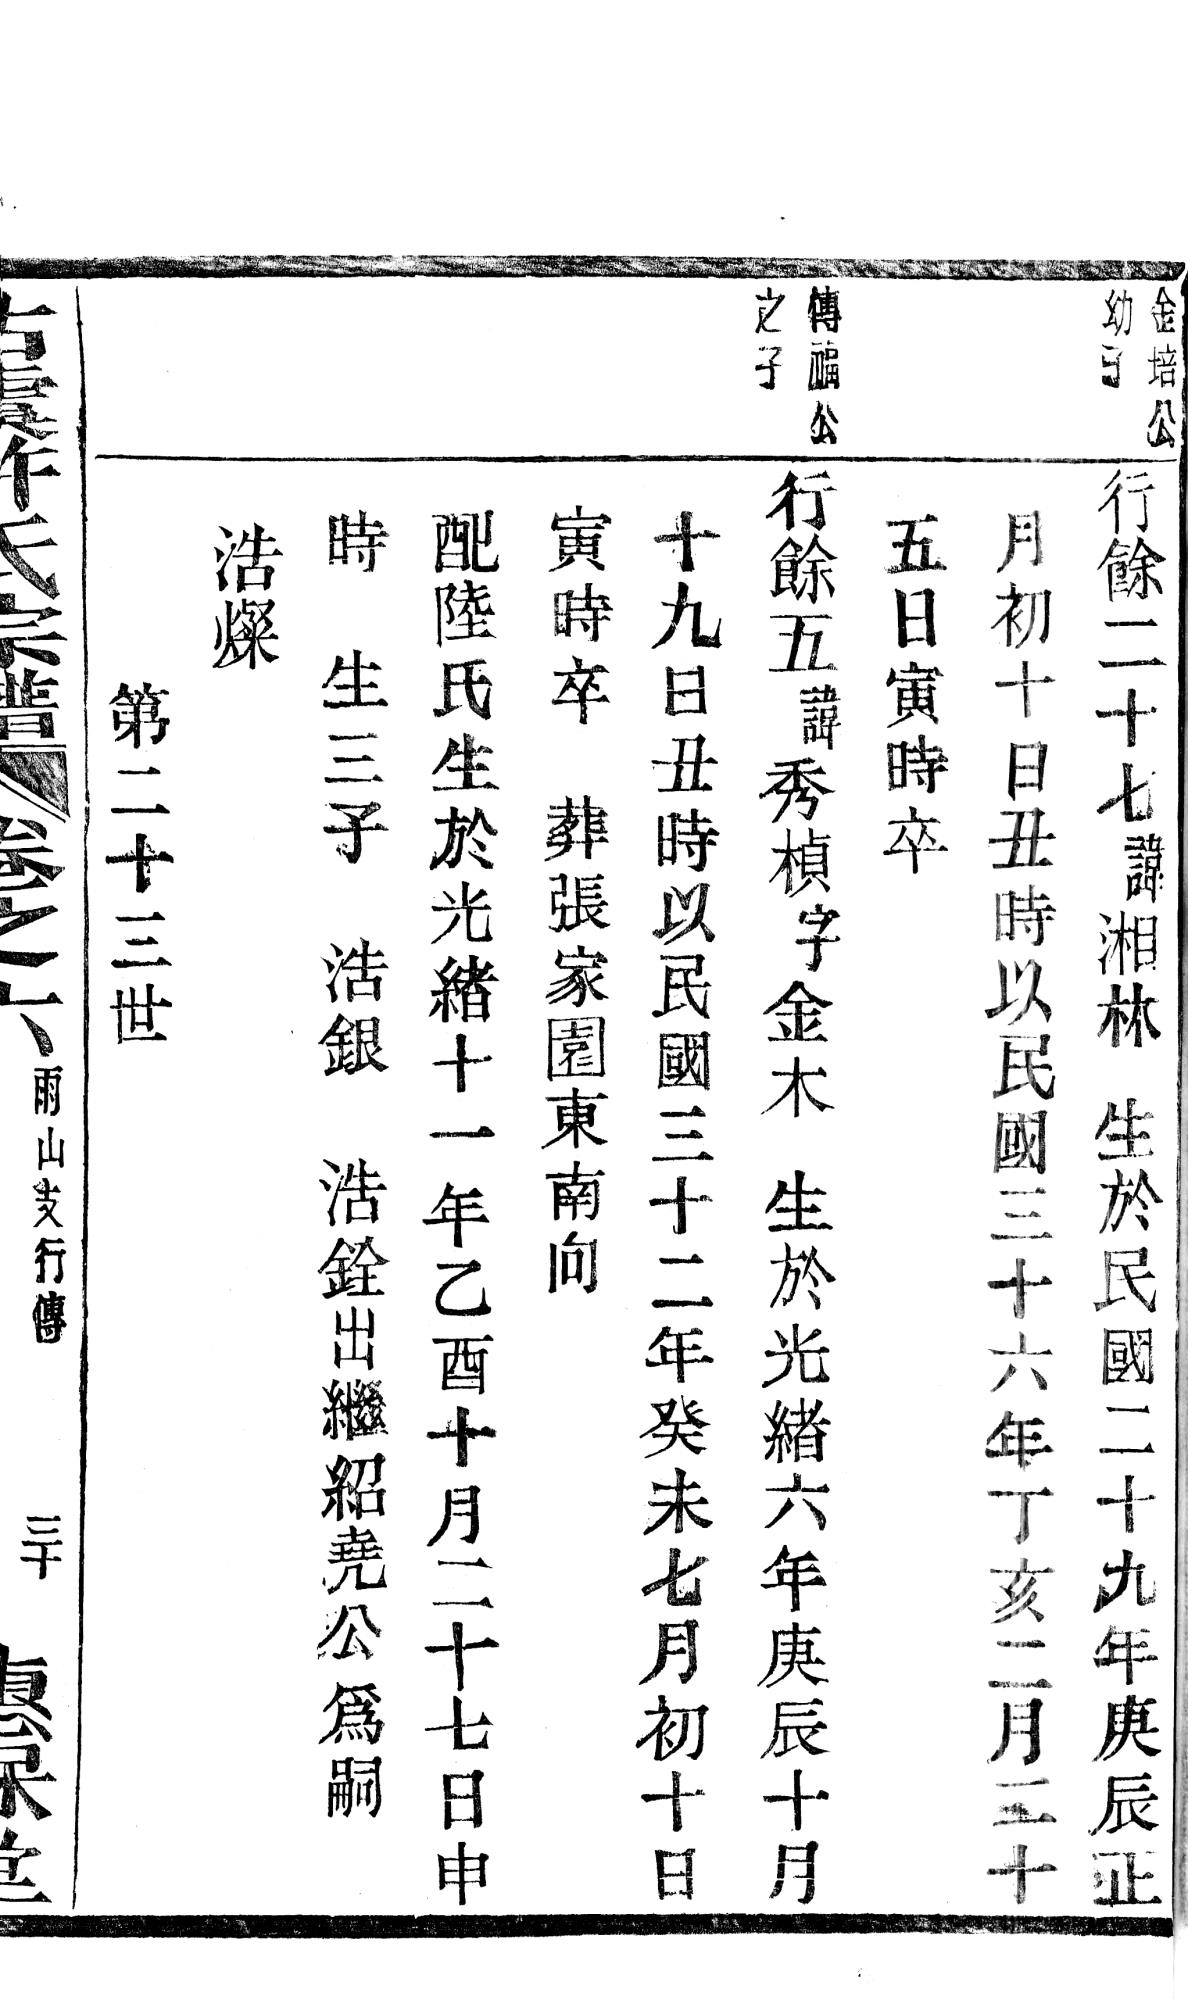 金培公
幼子
行餘二十七諱湘林　生於民國二十九年庚辰正
月初十日丑時以民國三十六年丁亥二月三十
五日寅時卒
傳福公
之子
行餘五諱秀楨字金木　生於光緒六年庚辰十月
十九日丑時以民國三十二年癸未七月初十日
寅時卒　葬張家園東南向
配陸氏生於光緒十一年乙酉十月二十七日申
時　生三子　浩銀　浩銓出繼紹堯公爲嗣
浩燦
第二十三世
古虞許氏宗譜
卷之六
雨山支行傳
三十
惠保堂